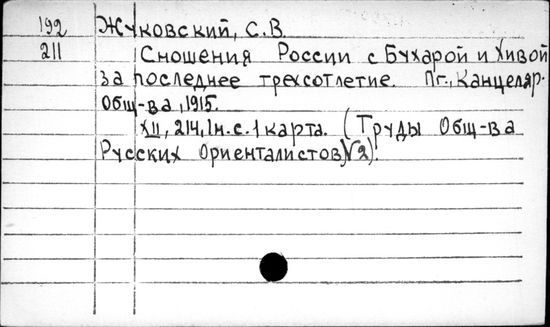 192 Жуковский, С.В
211 Сношения России с Бухарой и Хивой
за последнее трехсотлетие. Пг., Канцеляр.
Общ-ва, 1915.
XII, 214, 1 н.с. 1 карта. (Труды Общ-ва
Русских Ориенталистов, №2).